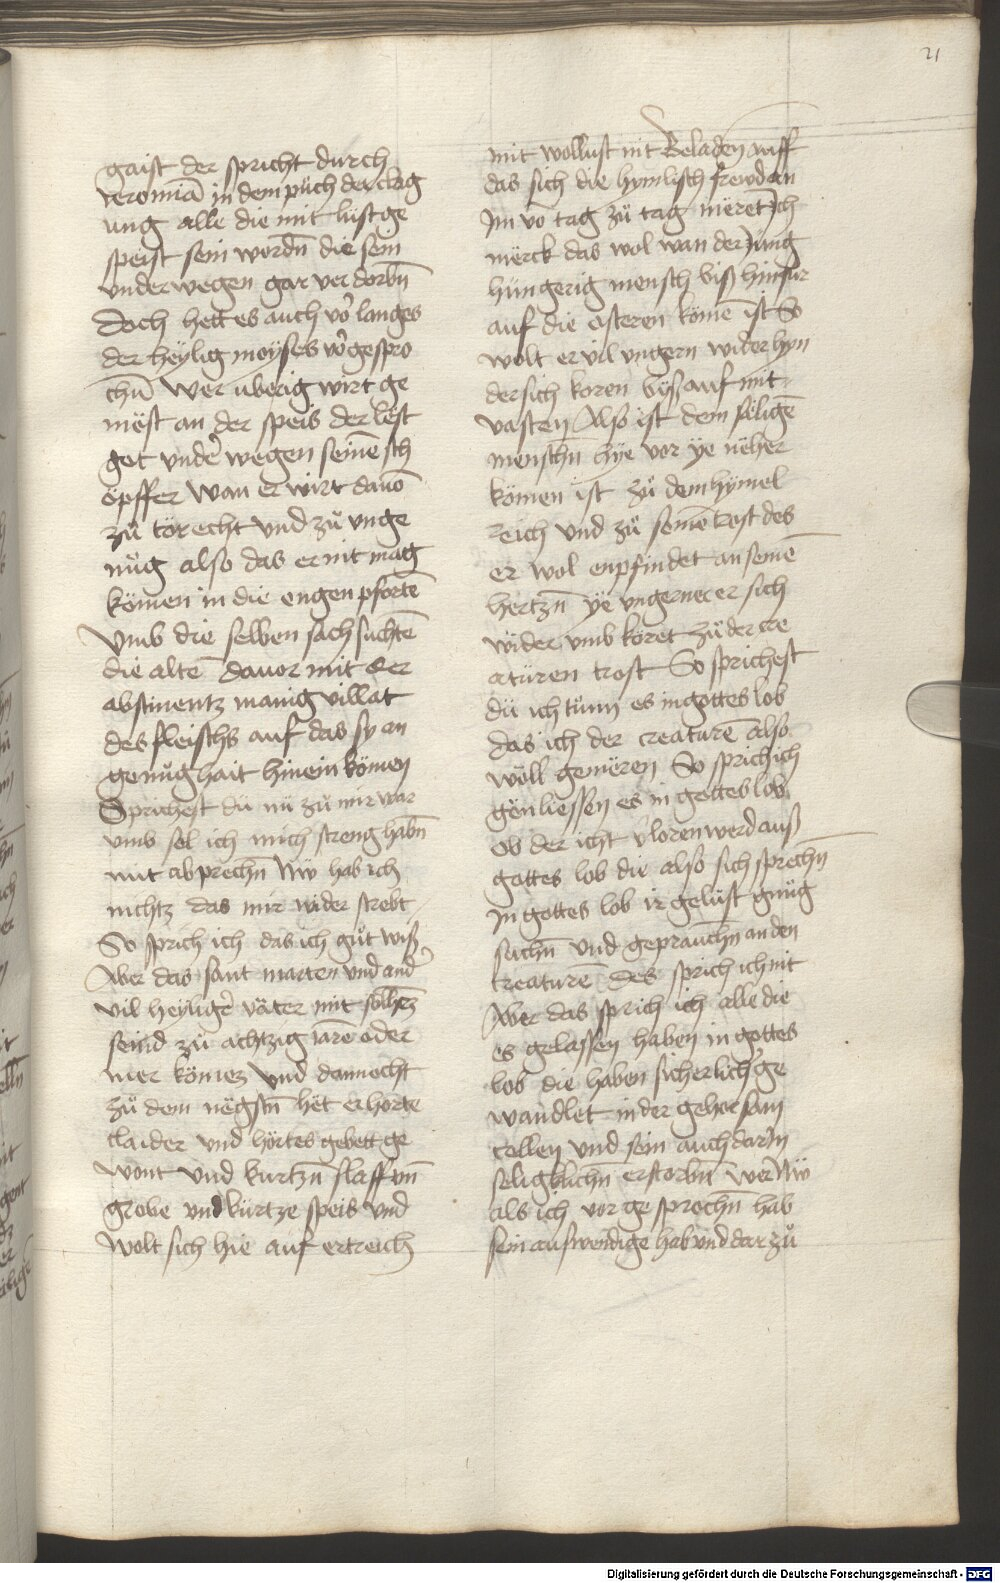 21
gaist der spricht durch
yeromiā in dem püch der clag
ung alle die mit lust ge
speist sein wordn̄ die sein
vnder wegen gar ver dorbn̄
Doch hett es auch vor langes
der heylig moyses vor gespro
chn̄ wer uberig wirt ge
mëst an der speis der lëst
got vnder wegen seinē sch
öpffer Wan er wirt dauō
zů törecht vnd zů vnge
nůg also das er nit mag
kömen in die engen pfortē
Vmb die selben sach suchtē
die altē dauor mit der
abstinentz manig villat
des fleischs auf das sy an
genůghait hinein kömen
Sprichest dü nü zů mir war
vmb sol ich mich streng habn̄
mit abprechn̄ Nw hab ich
nichtz das mir wider strebt
So sprich ich das ich gůt wiß
Aber das sant marten vnd and
vil heylig väter mit sölhez
seind zů achtzig iarē oder
mer kömez vnd dannocht
zů dem nëgstn̄ hët er hörte
claider vnd hörtes gebett ge
wont vnd kurtzn̄ slaff vn̄
grobe vnd kürtze speis vnd
wolt sich hie auf ertreich
mit wollust nit Beladen auff
das sich die hymlisch frewd an
Im vō tag zů tag mëret Ich
mërck das wol wan der Jüng
hüngerig mensch biß hinfür
auf die osteren kömē ist So
wolt er vil vngern wider hyn
der sich koren byß auf mit
vasten Also ist dem säligē
menschn̄ hye vor ye näher
kömen ist zů dem hymel
reich vnd zů seinē trost des
er wol enpfindet an seinē
hertzn̄ ye vngerner er sich
wider vmb köret zů der cre
atüren trost So sprichest
dü ich tůnn es in gottes lob
das ich der creaturē also
wöll gemëren So sprich ich
gön liessen es in gottes lob
ob der icht vloren werd auß
gottes lob die also sich sprechn̄
In gottes lob ir gelust gnůg
süchn̄ vnd gepraüchn̄ an den
creaturē Des sprich ich nit
Aber das sprich ich alle die
es gelassen haben in gottes
lob die haben sicherlich ge
wandlet in der gehorsam
collen vnd sein auch darin
seligklichn̄ erstorbn̄ Wer Nw
als ich vor ge sprochn̄ hab
sein auswendige hab vnd dar zů
Digitalisierung gefördert durch die Deutsche Forschungsgemeinschaft - DFG